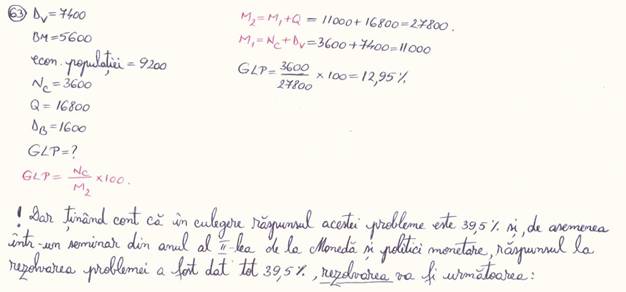 63) Dv=7400
BM=5600
econ. populației=9200
Nc=3600
Q=16800
DB=1600
GLP=?
GLP= Nc/M2 ×100.
M2=M1+Q = 11000+16800=27800.
M1=Nc+Dv=3600+7400=11000
GLP= 3600/27800 ×100=12,95%
! Dar ținând cont că în culegere răspunsul acestei probleme este 39,5% și, de asemenea
într-un seminar din anul al II-lea de la Monedă și politici monetare, răspunsul la
rezolvarea problemei a fost dat tot 39,5%, rezolvarea va fi următoarea: